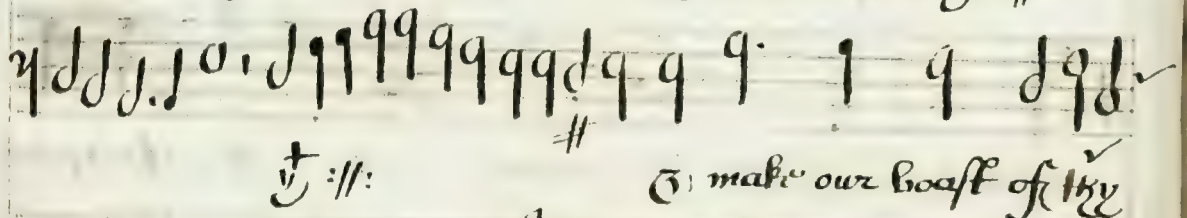 :||: & make our boast of thy